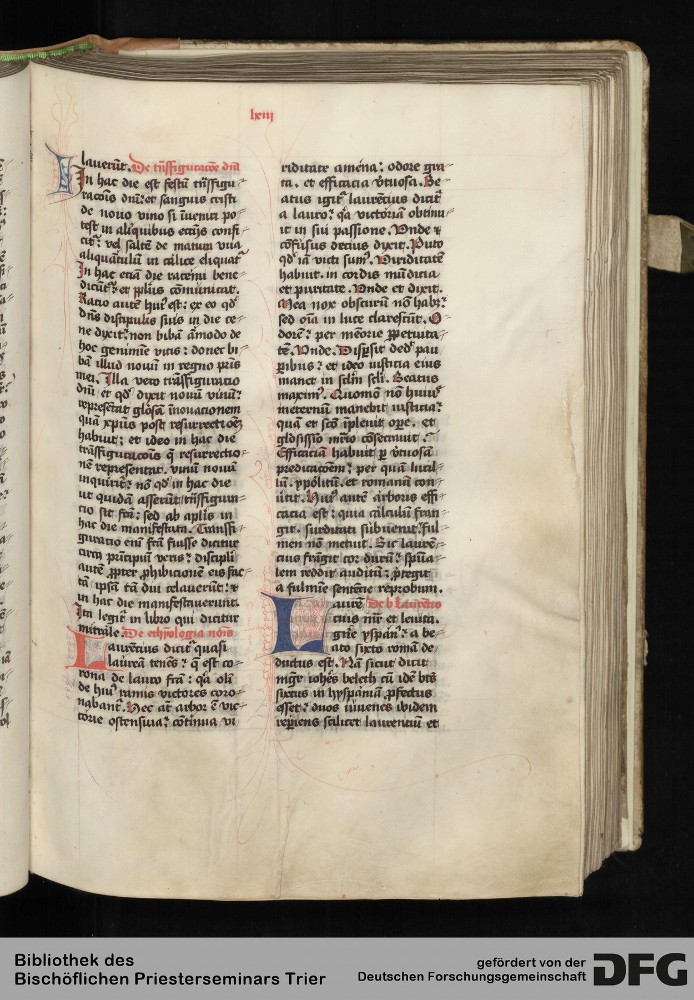 lxiij
lauerūt. De trāsfiguracōe dnī
In hac die est festū trāsfigu-
racōis dnī: et sanguis cristi
de nouo vino si īueniri po-
test in aliquibus eccijs confi-
cit᷑: vel saltē de matura vua
aliquātulū in calice eliquat᷑
In hac etiā die racemi bene-
dicūt᷑: et pplūs cōmunicat.
Racio autē huiꝰ est: ex eo qd̓
dn̄s discipulis suis in die ce-
ne dyxit: non bibā āmodo de
hoc genimīe vitis: donec bi-
bā illud nouū in regno pr̄is
mei. Illa vero trāsfiguracio
dnī et qd̓ dyxit nouū vinū:
representat glōsā īnouacionem
quā xp̄us post resurrectōeꝫ
habuit: et ideo in hac die
trāsfiguracōis q̄ resurrectio-
nē representat. vinū nouū
inquirit᷑: nō qd̓ in hac die
ut quidā asserūt trāsfigura-
cio sit fcā: sed ab aplīs in
hac die manifestata. Transfi-
guracio enī fcā fuisse dicitur
circa principiū veris: discipli
autē ꝓpter ꝓhibicionē eis fac-
tā ipsam tā diu celauerūt: et
in hac die manifestauerunt.
Ita legit᷑ in libro qui dicitur
mitrale. De ethimologia nōis
Laurencius dicit᷑ quasi
lauream tenēs: q̄ est co-
rona de lauro fcā: qͣ olī
de hiuꝰ ramis victores coro-
nabant᷑. Hec at̄ arbor ē vic-
torie ostensiua: cōtinua vi
riditate amena: odore gra-
ta. et efficacia vtuosa. Be-
atus igit᷑ laurēcius dicit᷑
a lauro: qͣ victoriā obtinu-
it in sui passione. Vnde et
cōfusus decius dyxit. Puto
qd̓ iā victi sumꝰ. Viriditatē
habuit. in cordis mūdicia
et puritate. Vnde et dyxit.
Mea nox obscurū nō habꝫ:
sed oīa in luce clarescūt. O-
dorē: per mēorie ꝑpetuita-
tē. Vnde. Dispersit dedꝰ pau
ꝑibus: et ideo iusticia eius
manet in sclīm scli. Beatus
maximꝰ. Quomō nō huiuꝰ
meternū manebit iusticia:
quā et scō īpleuit oꝑe. et
glōsissīo mrīo cōsecrauit.
Efficaciā habuit ꝑ vtuosā
predicatōem: per quā lucil-
lū. ypolitū. et romanū con-
ūtit. Huiꝰ autē arboris effi-
cacia est: quia calculū fran-
git. surditati subuenit: ful
men nō metuit. Sic lauren-
cius frāgit cor durū: spūa-
lem reddit auditū: ꝓtegit
a fulmīe sentētie reproborum.
Laurē De b Laurēcio
cius mr̄ et leuita.
grn̄e yspanꝰ: a be-
ato sixto romā de-
ductus est. Nā sicut dicit
mgr̄ iohēs beleth cū idē bts̄
sixtus in hyspaniā ꝓfectus
esset: duos iuuenes ibidem
reperiens scilicet laurentiū et
Bibliothek des
Bischöflichen Priesterseminars Trier
gefördert von der
Deutschen Forschungsgemeinschaft
DFG